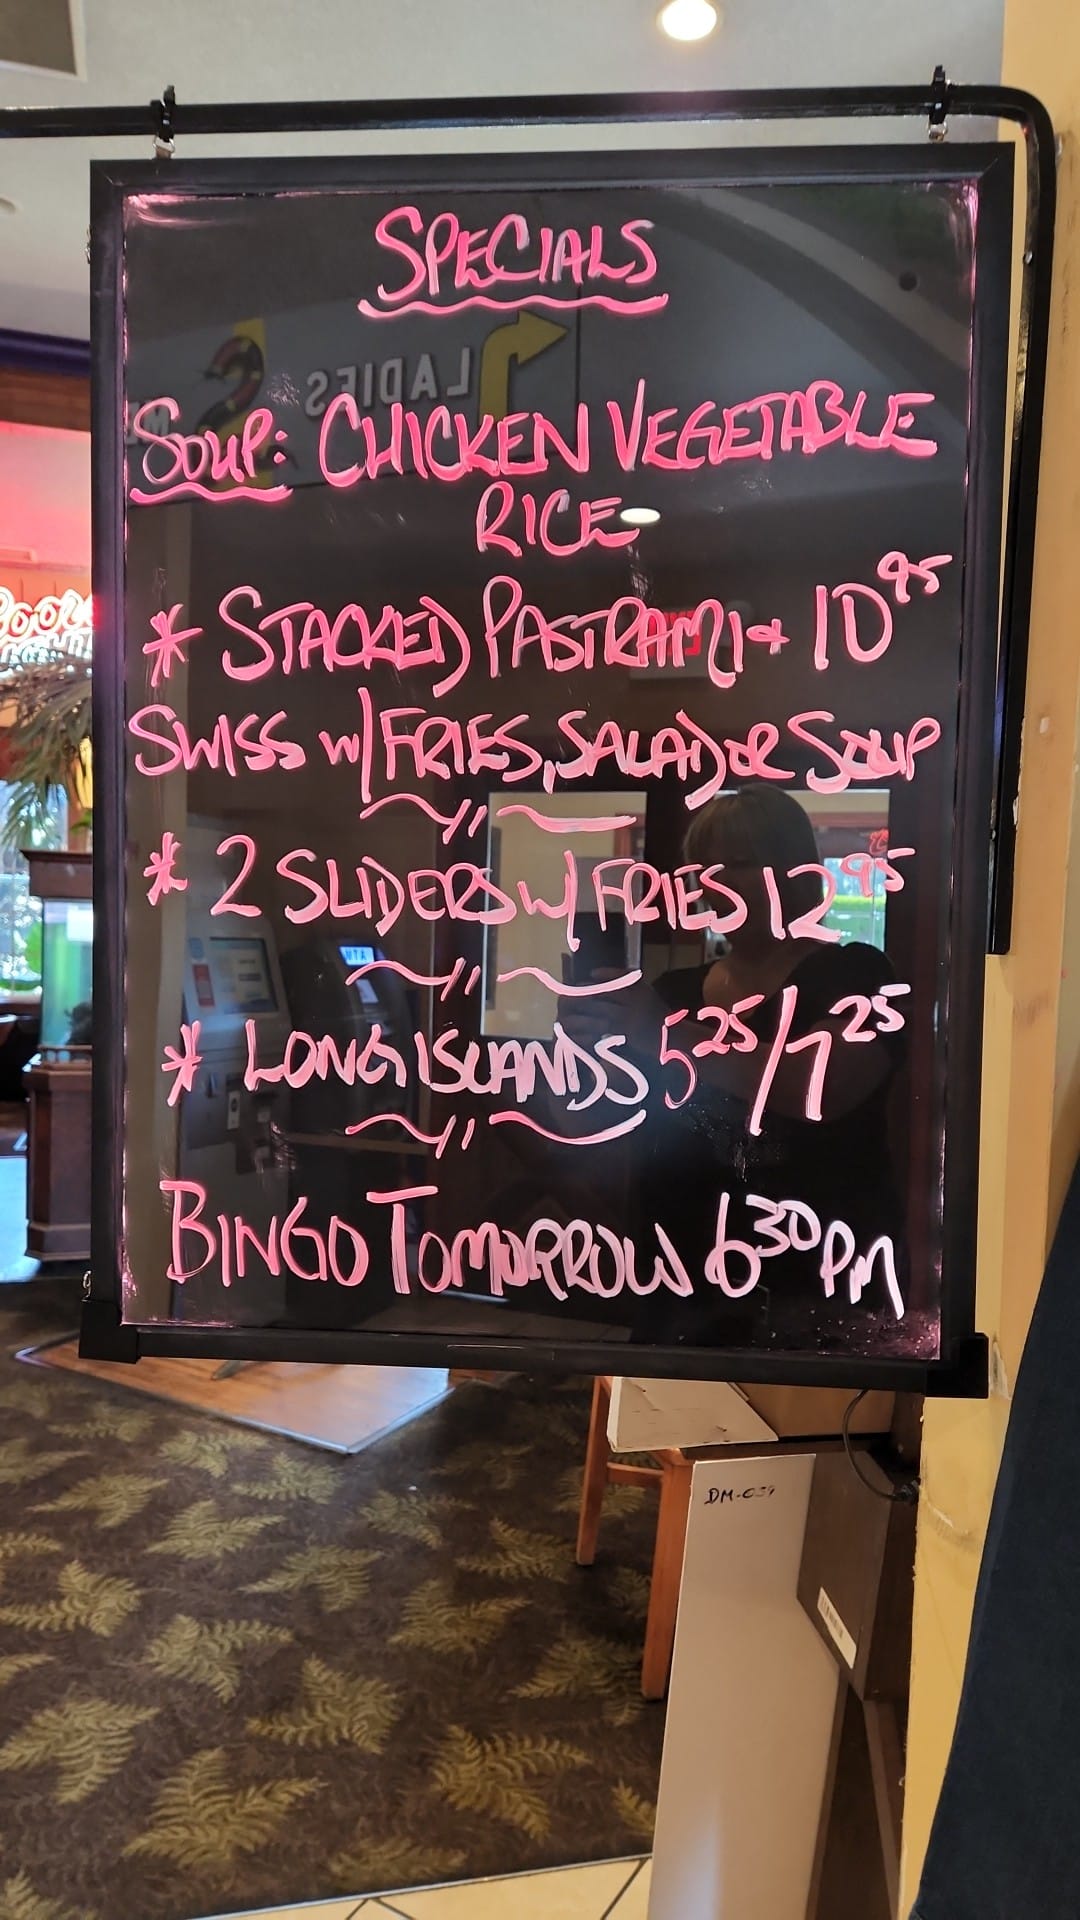 SPECIALS
LADIES
SOUP: CHICKEN VEGETABLE
RICE
* STACKED PASTRAMI & 10 95
SWISS w/ FRIES, SALAD OR SOUP
* 2 SLIDERS w/ FRIES 12 95
ATM
* LONG ISLANDS 5 25 / 7 25
BINGO TOMORROW 6 30 PM
DM-039